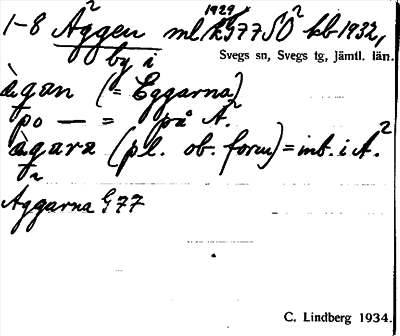 1-8 Äggen ml 1929 G77 SO² kb 1932,
by i Svegs sn, Svegs tg, Jämtl. län.
àgan (= Eggarna)
po — = på Ä.²
àgara (pl. ob. form) = inb. i Ä.²
Äggarna G77
C. Lindberg 1934.